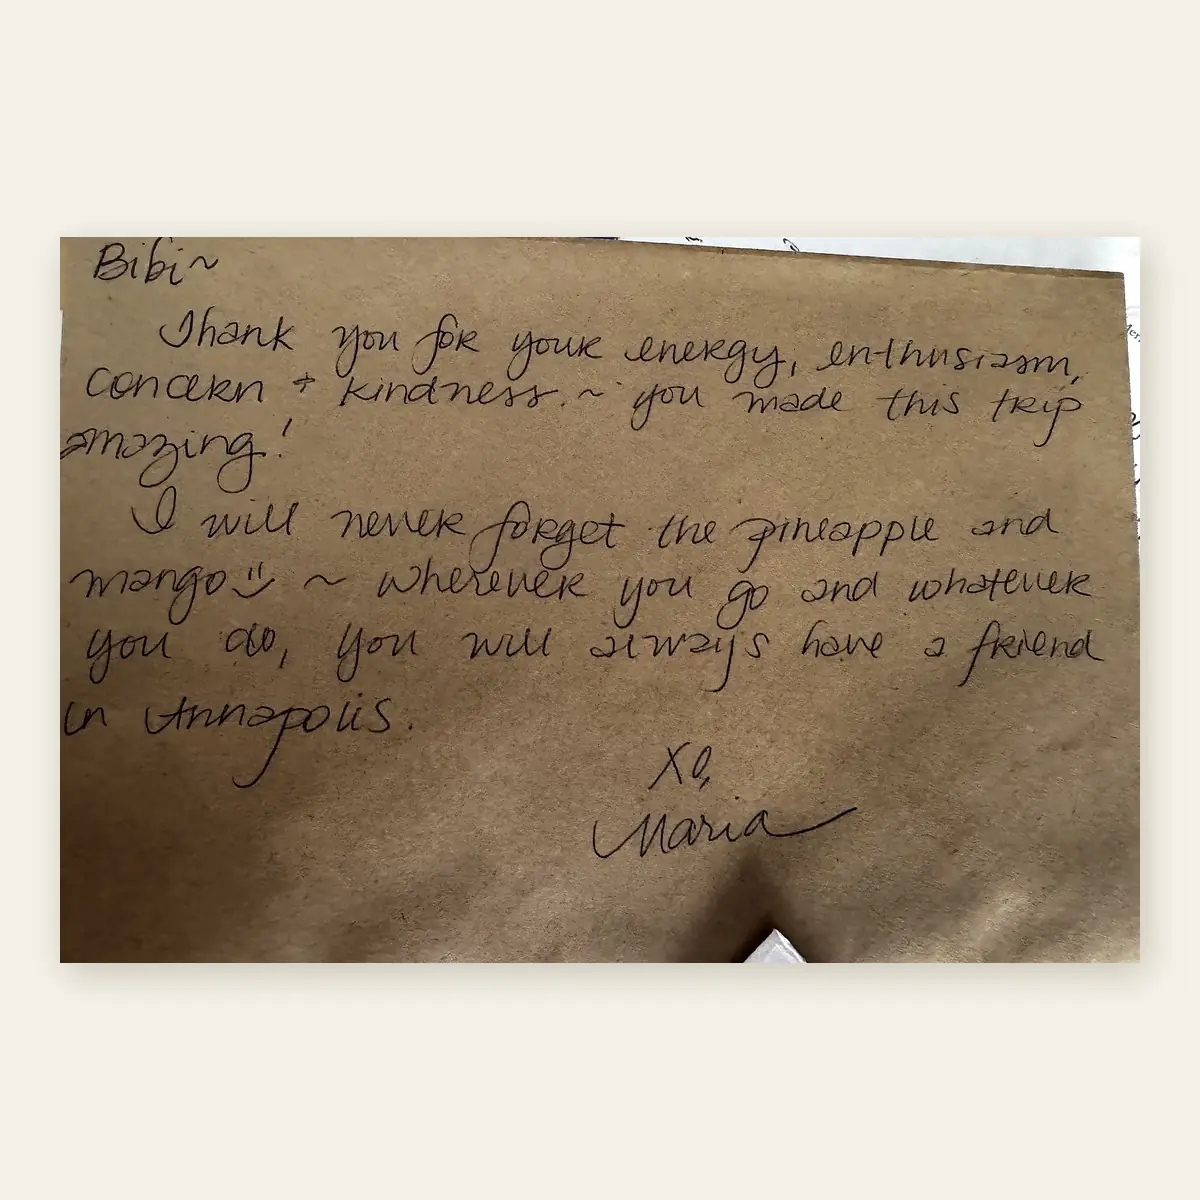 Bibi~
Thank you for your energy, enthusiasm,
concern + kindness. ~ you made this trip
amazing!
I will never forget the pineapple and
mango ~ wherever you go and whatever
you do, you will always have a friend
in Annapolis.
XO,
Maria